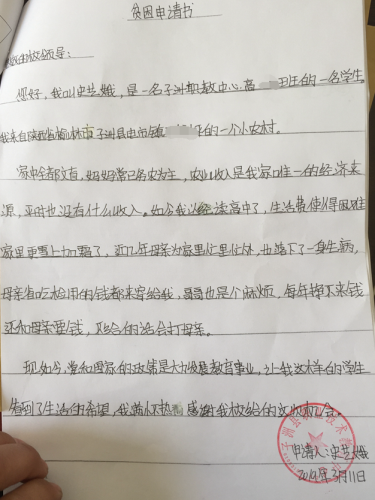 贫困申请书
尊敬的校领导:
您好,我叫史芸娥,是一名子洲职教中心高 班的一名学生,
我来自陕西省榆林市子洲县电市镇 的一个小农村。
家中全部文盲,妈妈常已务农为主,农业收入是我家唯一的经济来
源,平时也没有什么收入。如今我已经读高中了,生活费使得困难
家里更雪上加霜了,近几年母亲为家里忙里忙外,也落下了一身生病,
母亲省吃检用的钱都来寄给我,哥哥也是个麻烦,每年挣不来钱
还和母亲要钱,不给的话会打母亲。
现如今,党和国家的政策是大力发展教育事业,让我这样的学生
看到了生活的希望,我满怀热 感谢我校给的这次机会。
申请人:史芸娥
3月11日